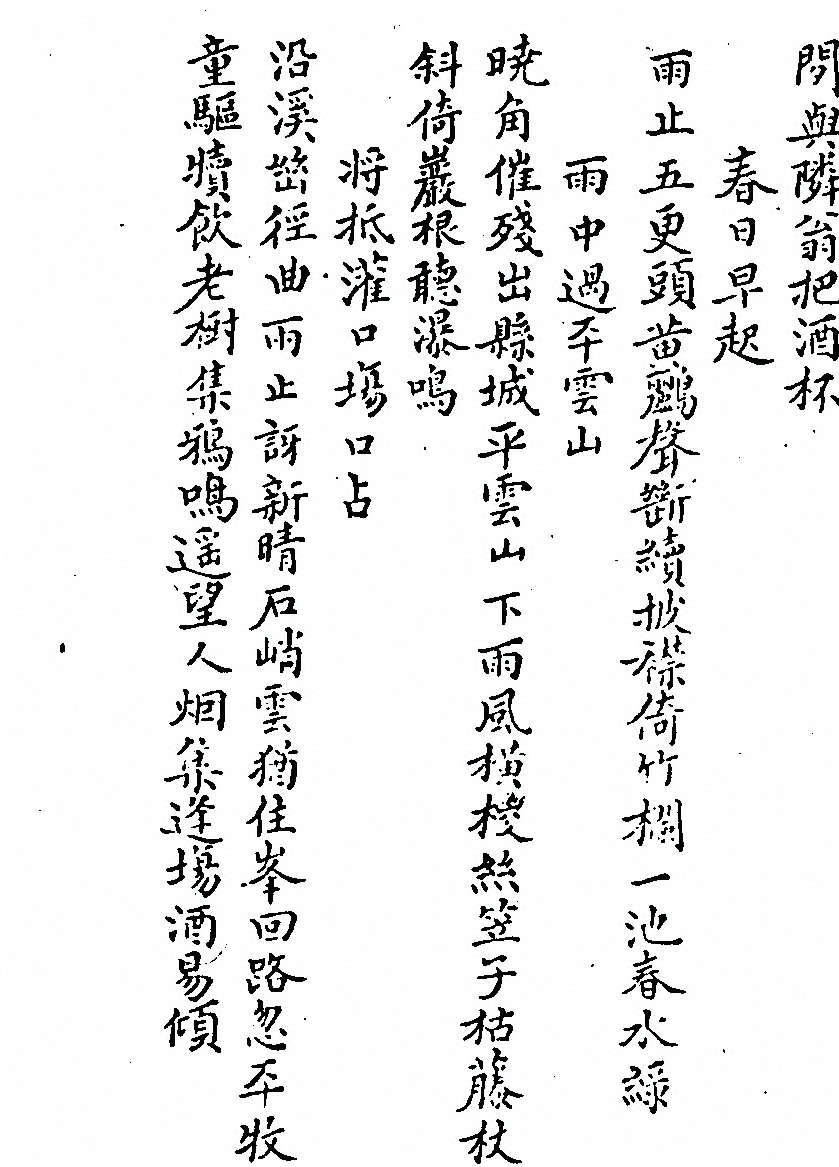 閒與隣翁把酒杯
春日早起
雨止五更頭黄鸝聲斷續披襟倚竹欄一池春水綠
雨中過平雲山
曉角催殘出縣城平雲山下雨風橫椶絲笠子枯藤杖
斜倚巖根聽瀑鳴
將抵灌口塲口占
沿溪幽徑曲雨止訝新晴石峭雲猶住峯回路忽平牧
童驅犢飲老樹集鴉鳴遥望人烟集逢塲酒易傾